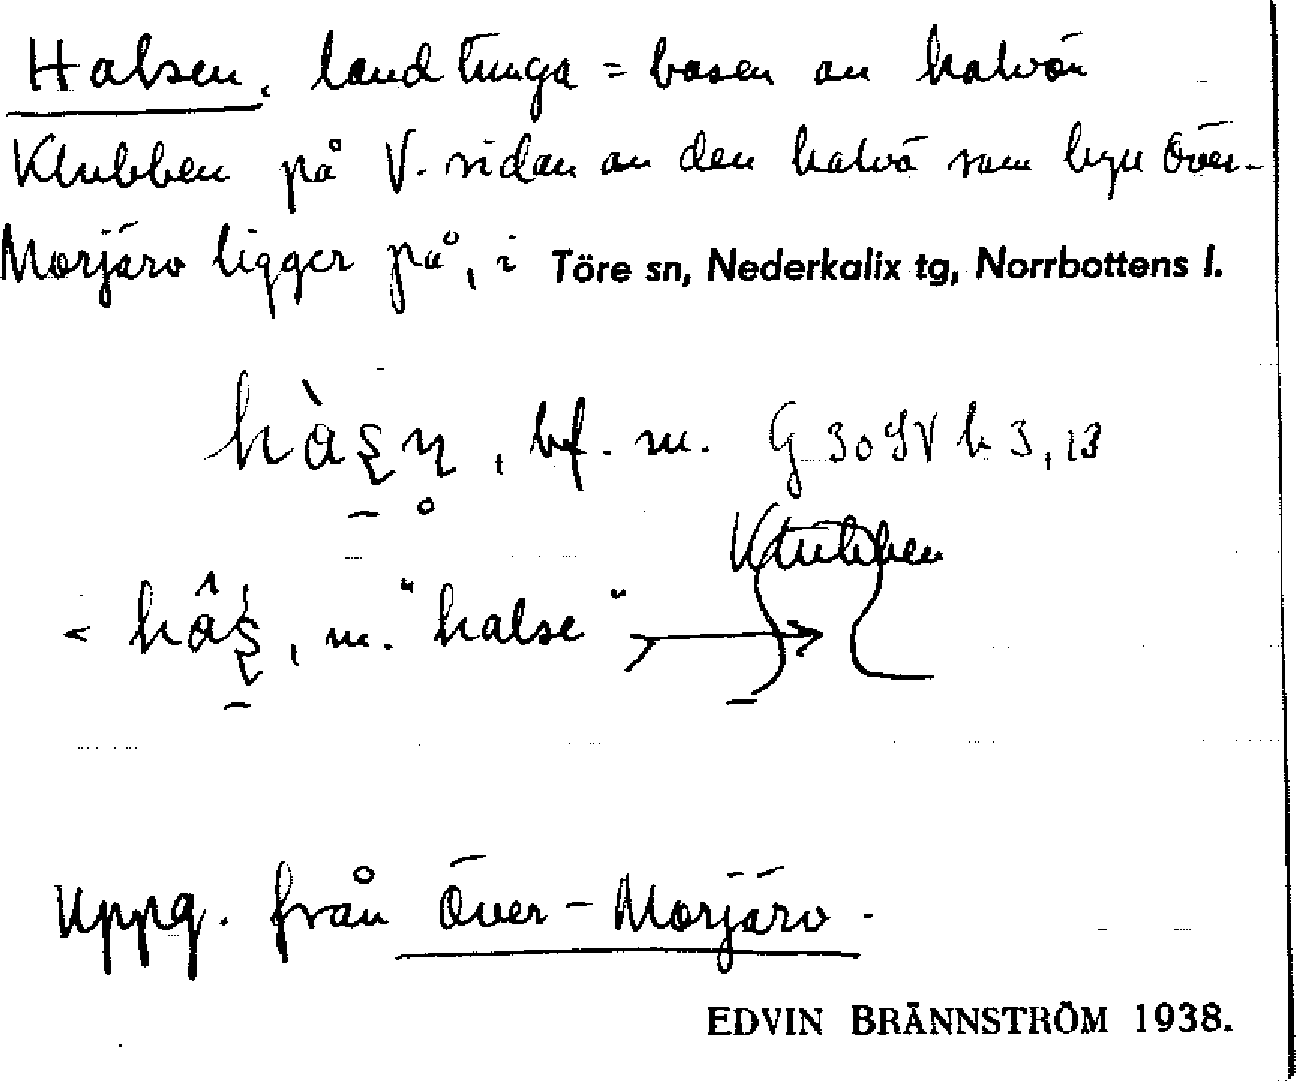 Halsen, landtunga = basen av halvön
Klubben på V. sidan av den halvö som byn Över-
Morjärv ligger på, i Töre sn, Nederkalix tg, Norrbottens l.
bf. m. G 30 SV b 3, 13
Klubben
< m. "halse",
Uppg. från Över-Morjärv.
EDVIN BRÄNNSTRÖM 1938.